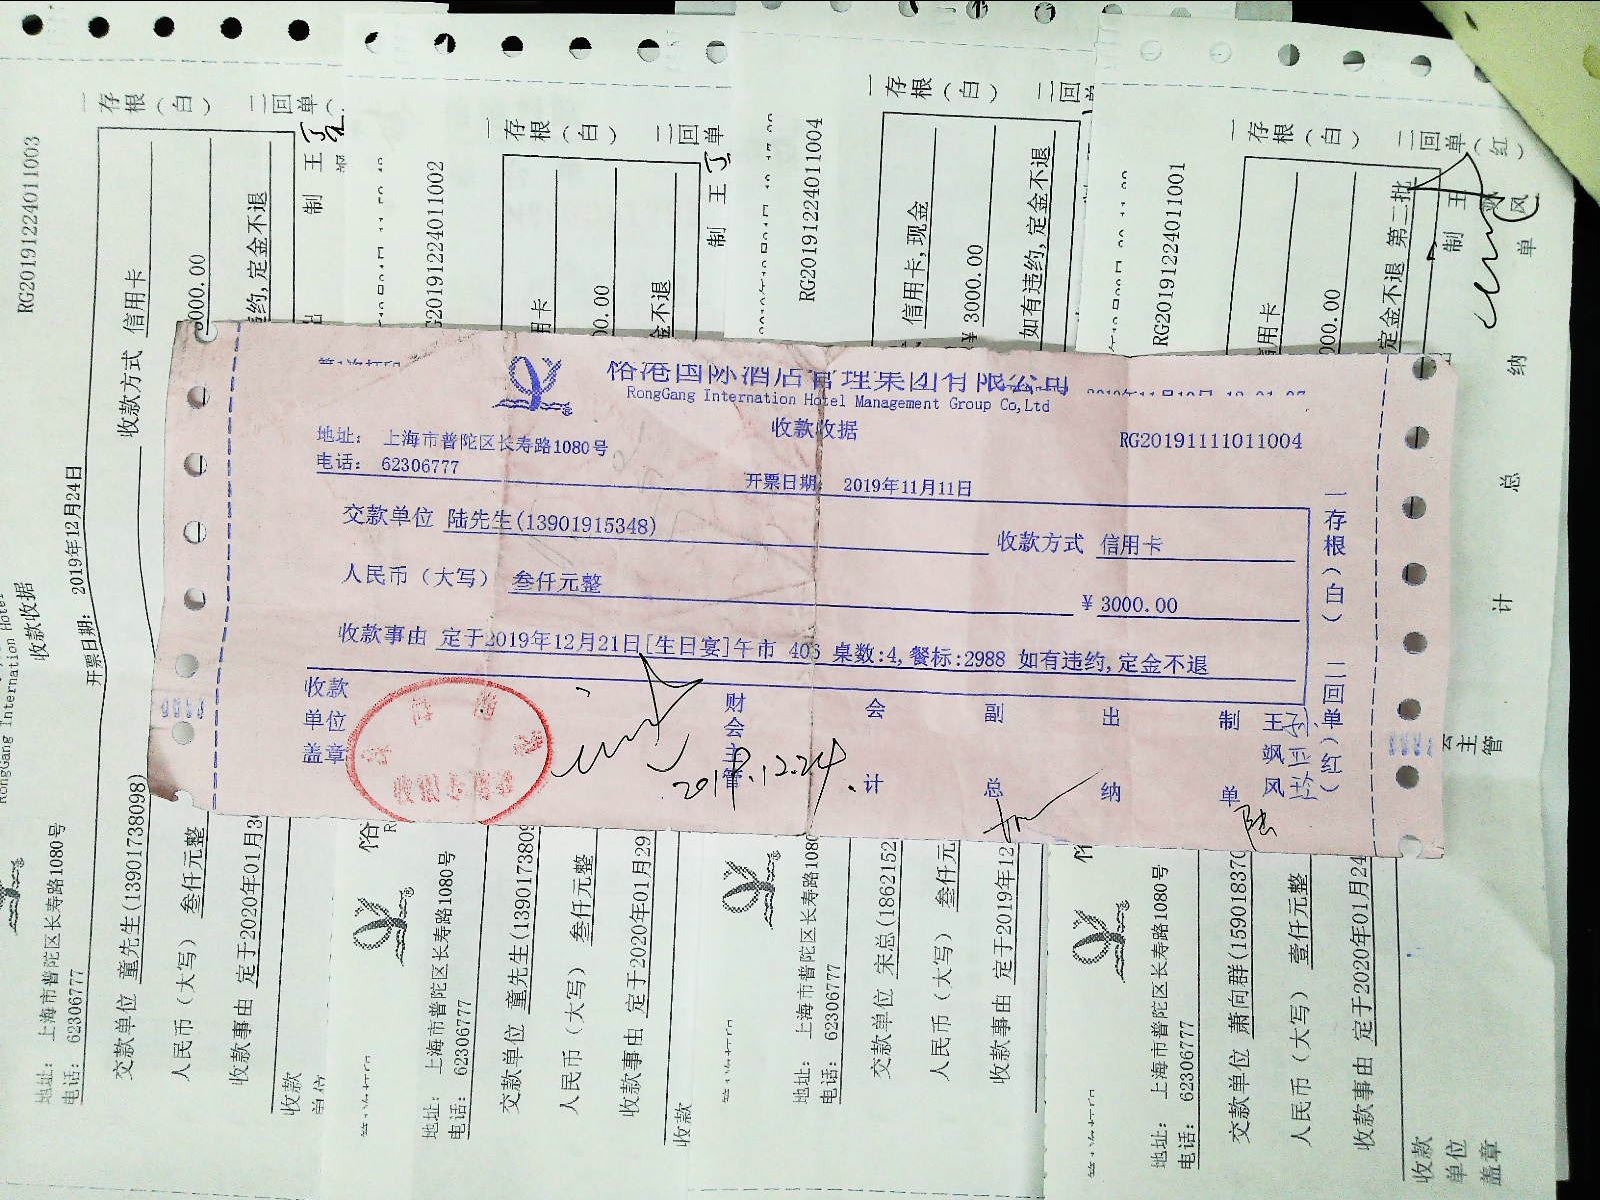 裕港国际酒店管理集团有限公司
RongGang Internation Hotel Management Group Co,Ltd
收款收据
RG20191111011004
地址: 上海市普陀区长寿路1080号
电话: 62306777
开票日期: 2019年11月11日
交款单位 陆先生(13901915348)
收款方式 信用卡
人民币(大写) 叁仟元整
¥ 3000.00
收款事由 定于2019年12月21日[生日宴]午市 405 桌数:4,餐标:2988 如有违约,定金不退
收款单位盖章
财会主管
会计
副总
出纳
制单
王飘风
陆
2019.12.24.
一存根(白) 二回单(红)
RG20191224011003
一存根(白) 二回单
RongGang Internation Hotel
收款收据
开票日期: 2019年12月24日
地址: 上海市普陀区长寿路1080号
电话: 62306777
交款单位 童先生(13901738098)
收款方式 信用卡
人民币(大写) 叁仟元整
000.00
收款事由 定于2020年01月3
违约,定金不退
收款
单位
制 王
G20191224011002
一存根(白) 二回单
地址: 上海市普陀区长寿路1080号
电话: 62306777
交款单位 童先生(1390173809
用卡
人民币(大写) 叁仟元整
00.00
收款事由 定于2020年01月29
金不退
收款
制 王
RG20191224011004
一存根(白) 二回
地址: 上海市普陀区长寿路1080
电话: 62306777
交款单位 宋总(1862152
信用卡,现金
人民币(大写) 叁仟元
¥ 3000.00
收款事由 定于2019年12
如有违约,定金不退
RG20191224011001
一存根(白) 二回单(红)
地址: 上海市普陀区长寿路1080号
电话: 62306777
交款单位 萧向群(15901837
用卡
人民币(大写) 壹仟元整
000.00
收款事由 定于2020年01月24
定金不退 第二批
收款单位盖章
主管
总计
纳
制单
王飘风